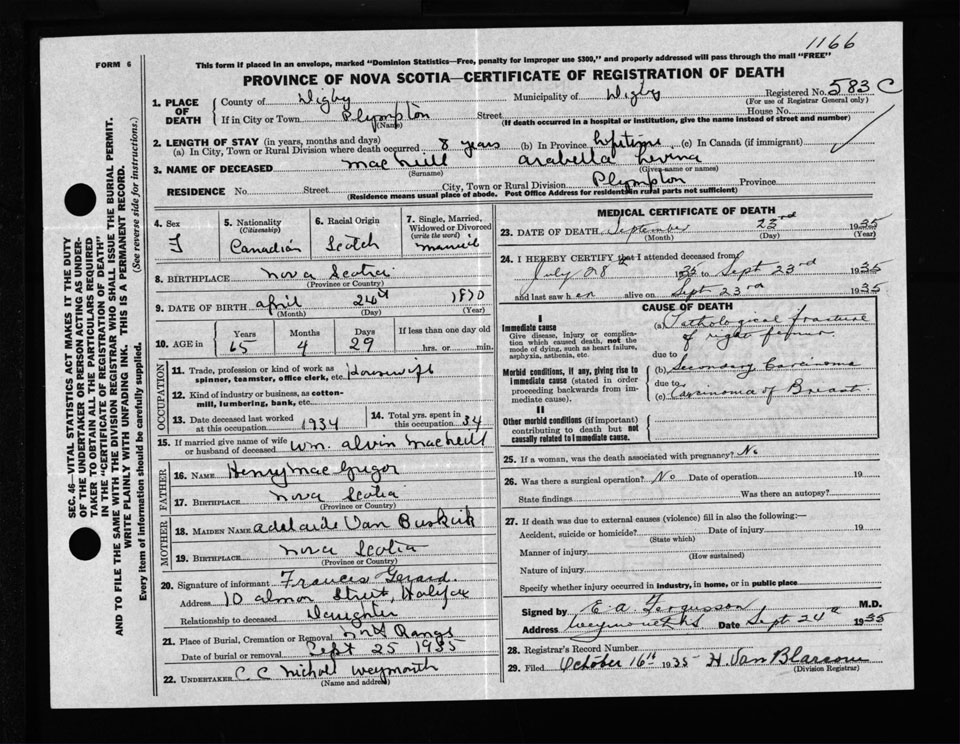 1166
FORM 6
This form if placed in an envelope, marked "Dominion Statistics—Free, penalty for improper use $300," and properly addressed will pass through the mail "FREE"
PROVINCE OF NOVA SCOTIA—CERTIFICATE OF REGISTRATION OF DEATH
SEC. 46—VITAL STATISTICS ACT MAKES IT THE DUTY
OF THE UNDERTAKER OR PERSON ACTING AS UNDER-
TAKER TO OBTAIN ALL THE PARTICULARS REQUIRED
IN THE "CERTIFICATE OF REGISTRATION OF DEATH"
AND TO FILE THE SAME WITH THE DIVISION REGISTRAR WHO SHALL ISSUE THE BURIAL PERMIT.
WRITE PLAINLY WITH UNFADING INK. THIS IS A PERMANENT RECORD.
Every item of information should be carefully supplied. (See reverse side for instructions.)
1. PLACE OF DEATH County of Digby Municipality of Digby Registered No. 583 C
(For use of Registrar General only)
If in City or Town Plympton Street House No.
(Name) (If death occurred in a hospital or institution, give the name instead of street and number)
2. LENGTH OF STAY (in years, months and days)
(a) In City, Town or Rural Division where death occurred 8 years (b) In Province lifetime (c) In Canada (if immigrant)
3. NAME OF DECEASED MacNeill Arabella Levina
(Surname) (Given name or names)
RESIDENCE No. Street City, Town or Rural Division Plympton Province
(Residence means usual place of abode. Post Office Address for residents in rural parts not sufficient)
4. Sex F
5. Nationality (Citizenship) Canadian
6. Racial Origin Scotch
7. Single, Married, Widowed or Divorced (write the word) Married
8. BIRTHPLACE Nova Scotia
(Province or Country)
9. DATE OF BIRTH April 24th 1870
(Month) (Day) (Year)
10. AGE in Years 65 Months 4 Days 29 If less than one day old hrs. or min.
OCCUPATION
11. Trade, profession or kind of work as spinner, teamster, office clerk, etc. Housewife
12. Kind of industry or business, as cotton-mill, lumbering, bank, etc.
13. Date deceased last worked at this occupation 1934
14. Total yrs. spent in this occupation 34
15. If married give name of wife or husband of deceased Wm. Alvin MacNeill
FATHER
16. NAME Henry MacGrigor
17. BIRTHPLACE Nova Scotia
(Province or Country)
MOTHER
18. MAIDEN NAME Adelaide Van Buskirk
19. BIRTHPLACE Nova Scotia
(Province or Country)
20. Signature of informant Frances Gerard
Address 10 Almon Street, Halifax
Relationship to deceased Daughter
21. Place of Burial, Cremation or Removal
Date of burial or removal Sept 25 1935
22. UNDERTAKER C C Nicholl Weymouth
(Name and address)
MEDICAL CERTIFICATE OF DEATH
23. DATE OF DEATH September 23rd 1935
(Month) (Day) (Year)
24. I HEREBY CERTIFY that I attended deceased from
July 28th 1935 to Sept 23rd 1935
and last saw her alive on Sept 23rd 1935
CAUSE OF DEATH
I
Immediate cause
Give disease, injury or complication which caused death, not the mode of dying, such as heart failure, asphyxia, asthenia, etc.
(a) Pathological fracture of right femur
due to
Morbid conditions, if any, giving rise to immediate cause (stated in order proceeding backwards from immediate cause).
(b) Secondary Carcinoma
due to
(c) Carcinoma of Breast
II
Other morbid conditions (if important) contributing to death but not causally related to immediate cause.
25. If a woman, was the death associated with pregnancy? No
26. Was there a surgical operation? No Date of operation 19
State findings Was there an autopsy?
27. If death was due to external causes (violence) fill in also the following:—
Accident, suicide or homicide? Date of injury 19
(State which)
Manner of injury
(How sustained)
Nature of injury
Specify whether injury occurred in industry, in home, or in public place
Signed by E. A. Fergusson M.D.
Address Weymouth NS Date Sept 24th 1935
28. Registrar's Record Number
29. Filed October 16th 1935 H. Van Blarcom
(Division Registrar)